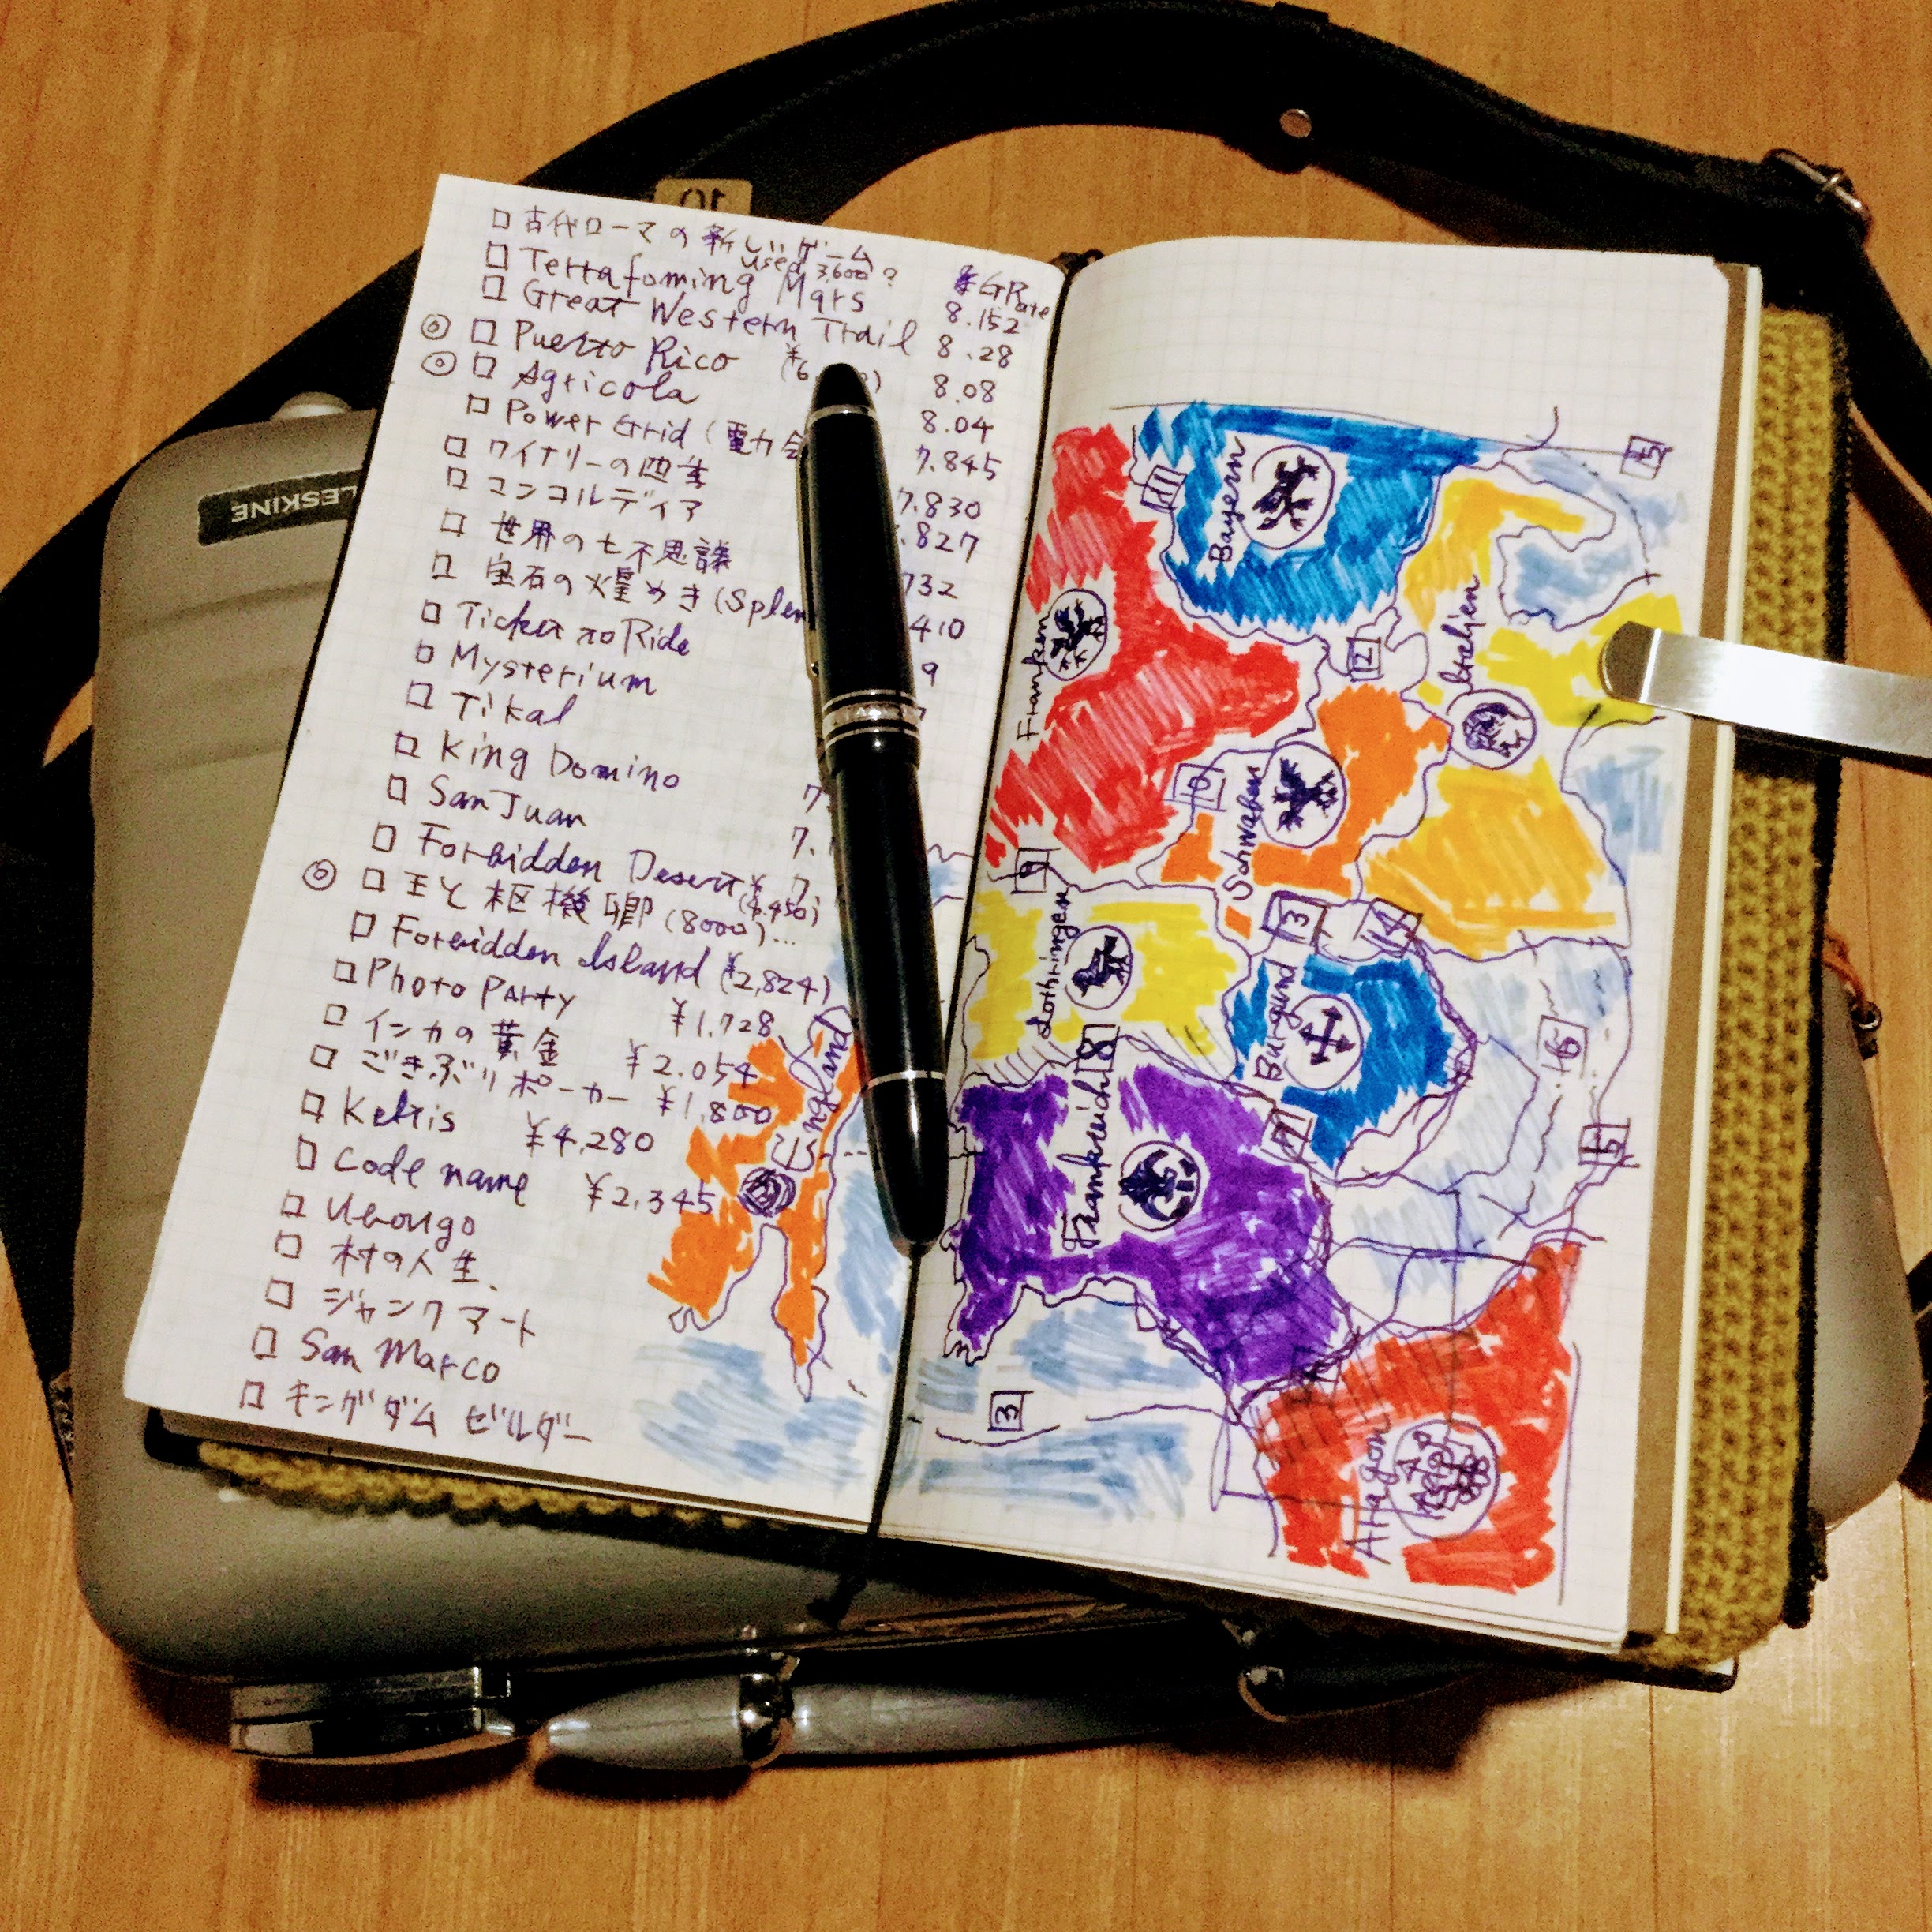 □ 古代ローマの新しいゲーム?
used 3,600
□ Terrafoming Mars 8.152
GRate
□ Great Western Trail 8.28
◎ □ Puerto Rico 8.08
◎ □ Agricola 8.04
□ Power Grid (電力会 7.845
□ ワイナリーの四季 7.830
□ コンコルディア .827
□ 世界の七不思議 732
□ 宝石の煌めき (Splen 410
□ Ticket to Ride 9
□ Mysterium 7
□ Tikal
□ King Domino 7.
□ San Juan 7.
□ Forbidden Desert 7.
(¥4,450)
◎ □ 王と枢機卿 (8000)...
□ Forbidden Island (¥2,824)
□ Photo Party ¥1.728
□ インカの黄金 ¥2.054
□ ごきぶりポーカー ¥1,800
□ Keltis ¥4,280
□ Code name ¥2.345
□ Ubongo
□ 村の人生
□ ジャンクマート
□ San Marco
□ キングダム ビルダー
England
Bayern
Franken
Italien
Schwaben
Lothringen
Burgund
Frankreich
Aragon
11
12
10
9
13
14
8
7
16
15
3
LESKINE
10